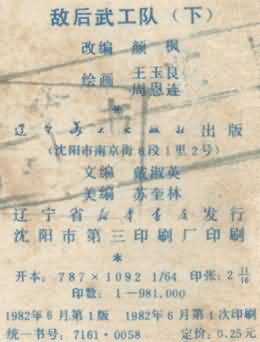 敌后武工队（下）
改编 颜枫
绘画 王玉良
周恩连
*
辽宁美术出版社出版
(沈阳市南京街6段1里2号)
文编 戴淑英
美编 苏奎林
辽宁省新华书店发行
沈阳市第三印刷厂印刷
*
开本：787×1092 1/64 印张：2 11/16
印数：1—981,000
1982年6月第1版 1982年6月第1次印刷
统一书号：7161·0058 定价：0.25元